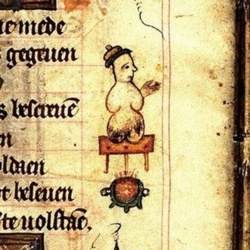 ue mede
gegeuen
s bescreuē
en
oldaen
t beseuen
ste uolstaē.